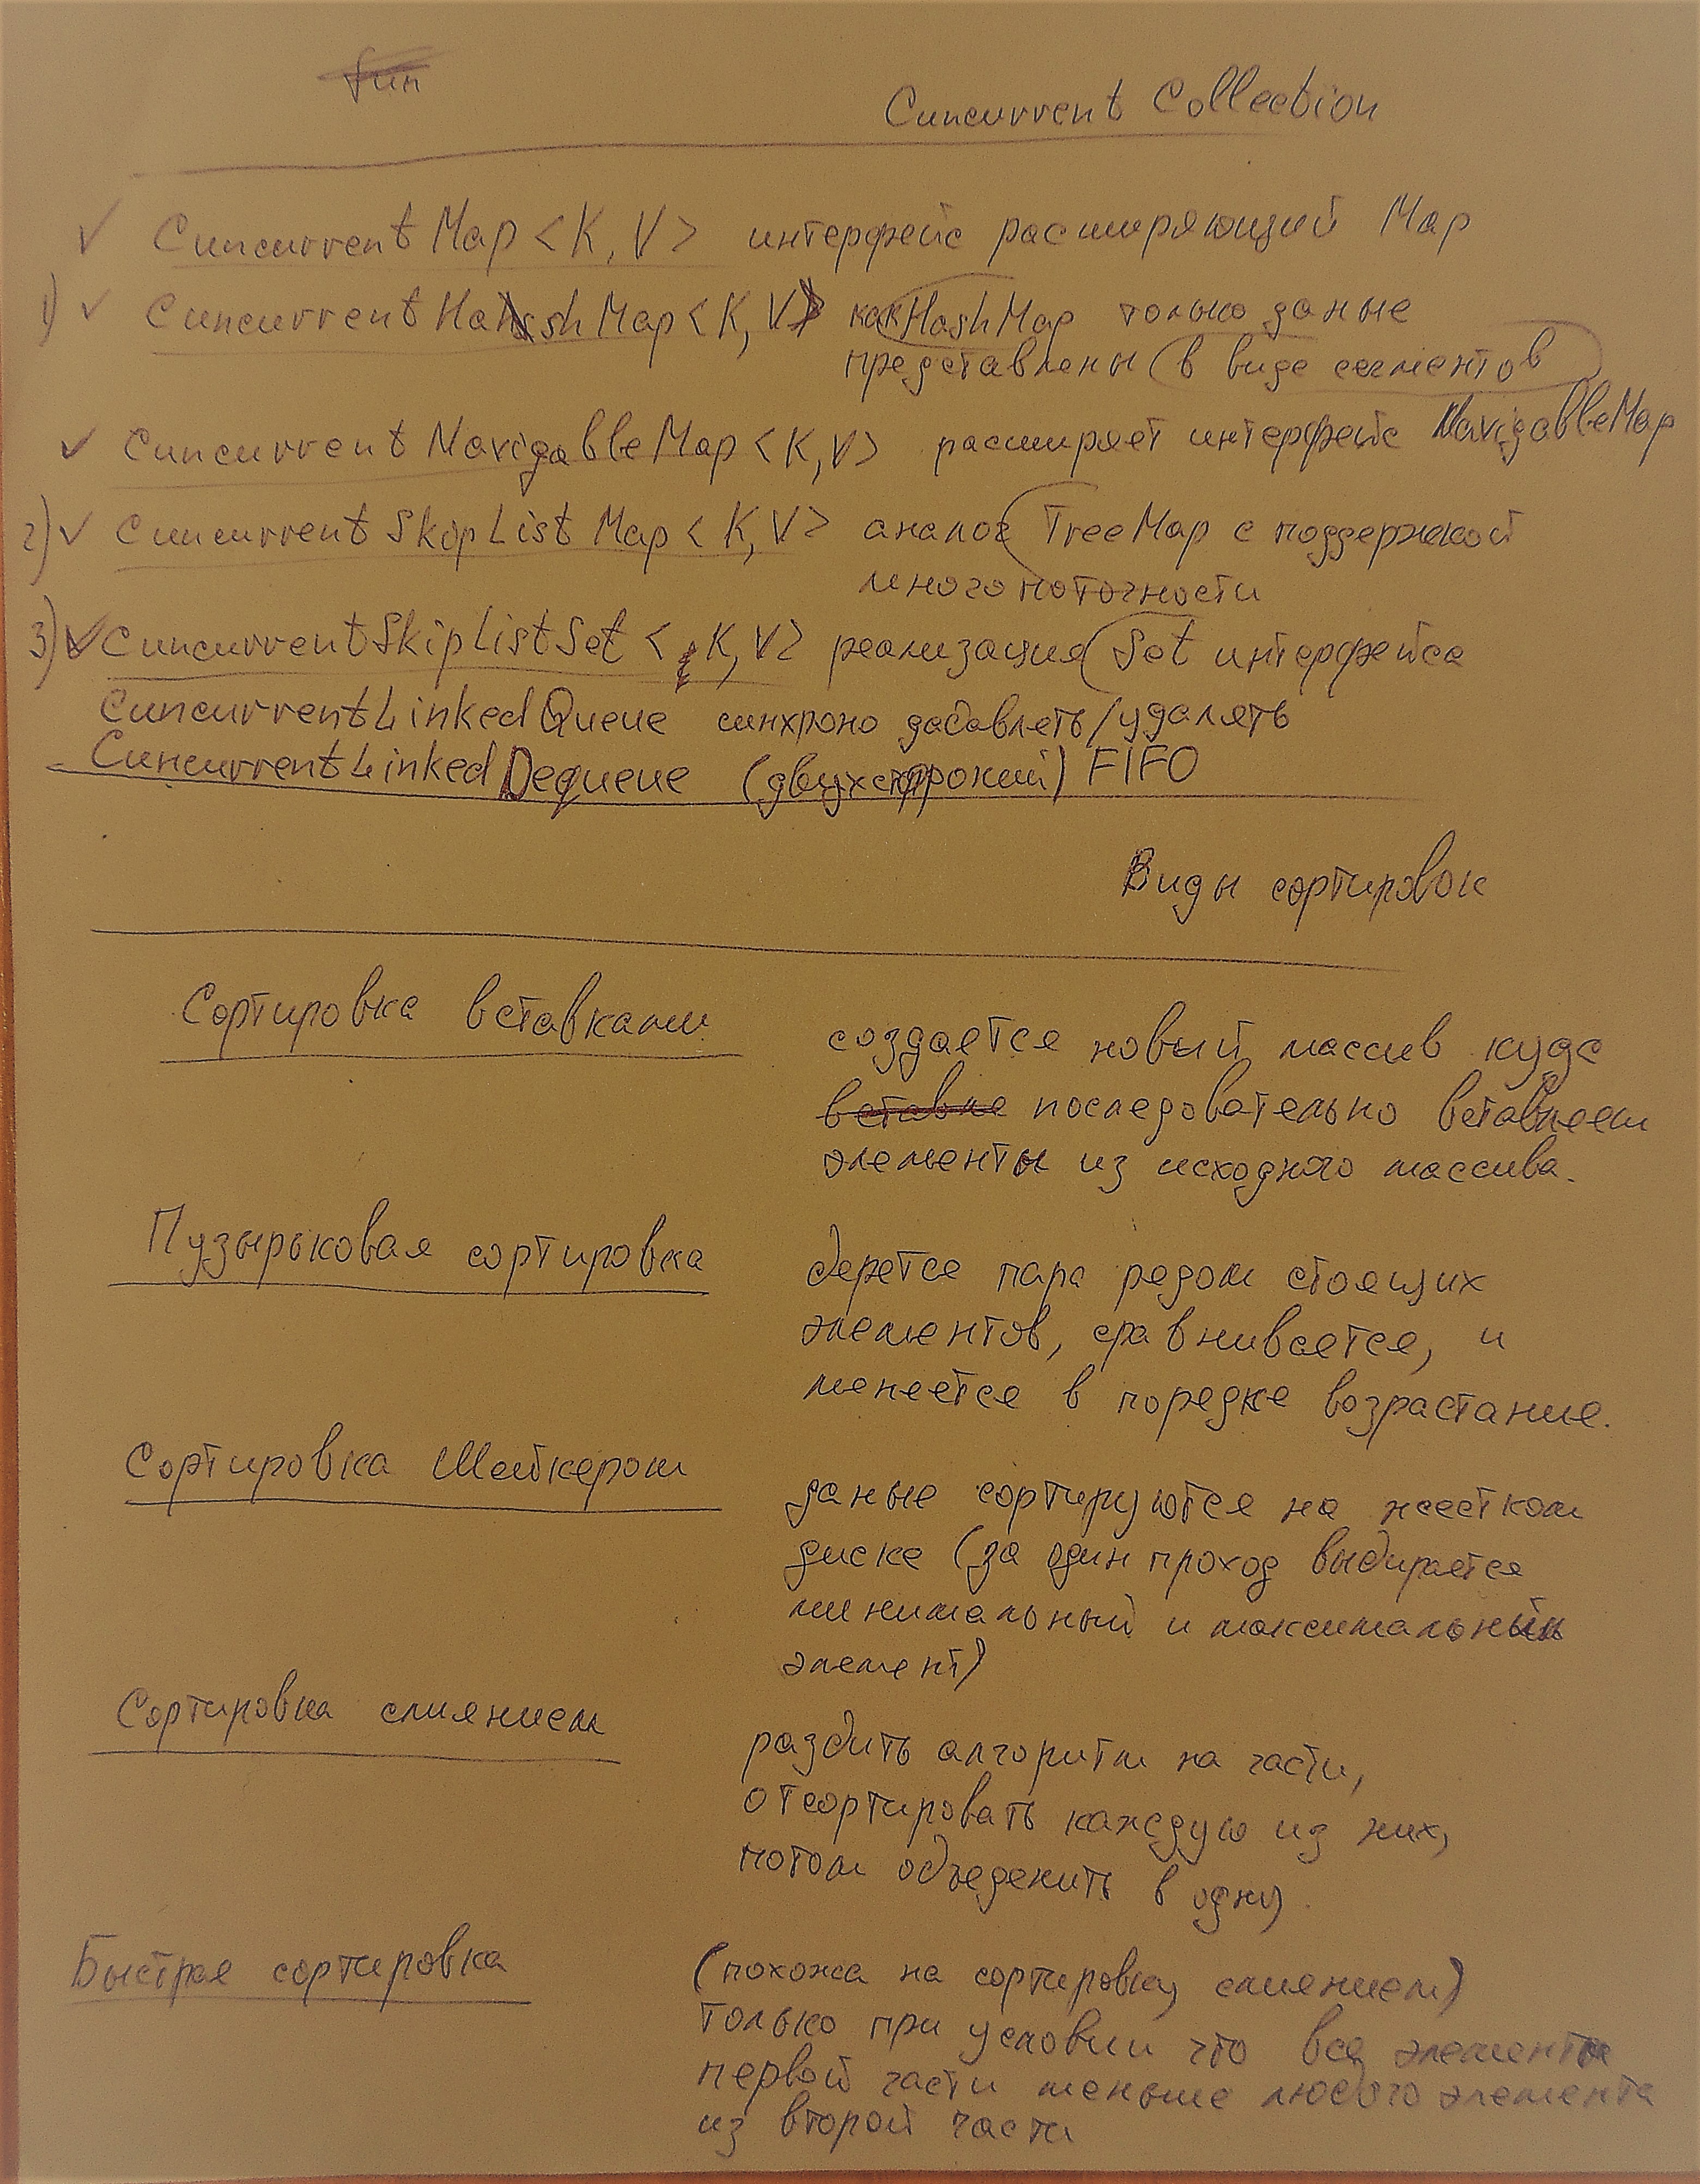 Cuncurrent Collection
✓ Cuncurrent Map <K, V> интерфейс расширяющий Map
1) ✓ Cuncurrent HashMap <K, V> как HashMap только даные
представлены (в виде сегментов
✓ Cuncurrent NavigableMap <K,V> расширяет интерфейс NavigableMap
2) ✓ Cuncurrent SkipList Map <K, V> аналог TreeMap с поддержкой
многопоточности
3) ✓ CuncurrentSkipListSet <K, V> реализация Set интерфейса
CuncurrentLinkedQueue синхроно дабавлеть/удалять
CuncurrentLinked Dequeue (двухстороний) FIFO
Виды сортировок
Сортировка вставками
создается новый массив куда
вставле последовательно вставлеем
элементы из исходного массива.
Пузырьковая сортировка
берется пара редом стоящих
элементов, сравнивается, и
менеется в поредке возрастание.
Сортировка Шейкером
даные сортируются на жестком
диске (за один проход выбирается
минимальный и максимальный
элемент)
Сортировка слиянием
разбить алгоритм на части,
отсортировать каждую из них,
потом объеденить в одну.
Быстрая сортировка
(похожа на сортировку слиянием)
только при условии что все элементы
первой части меньше любого элемента
из второй части